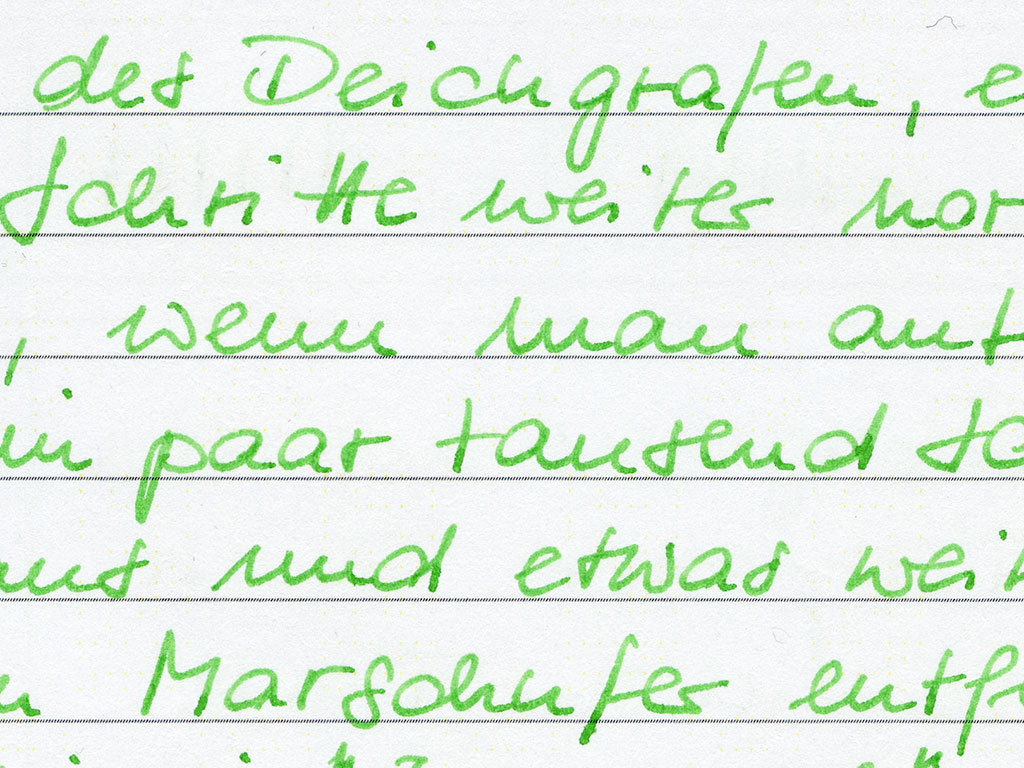 des Deichgrafen, e
Schritte weiter nor
, wenn man auf
in paar tausend Sc
aus und etwas wei
n Marschufer entf